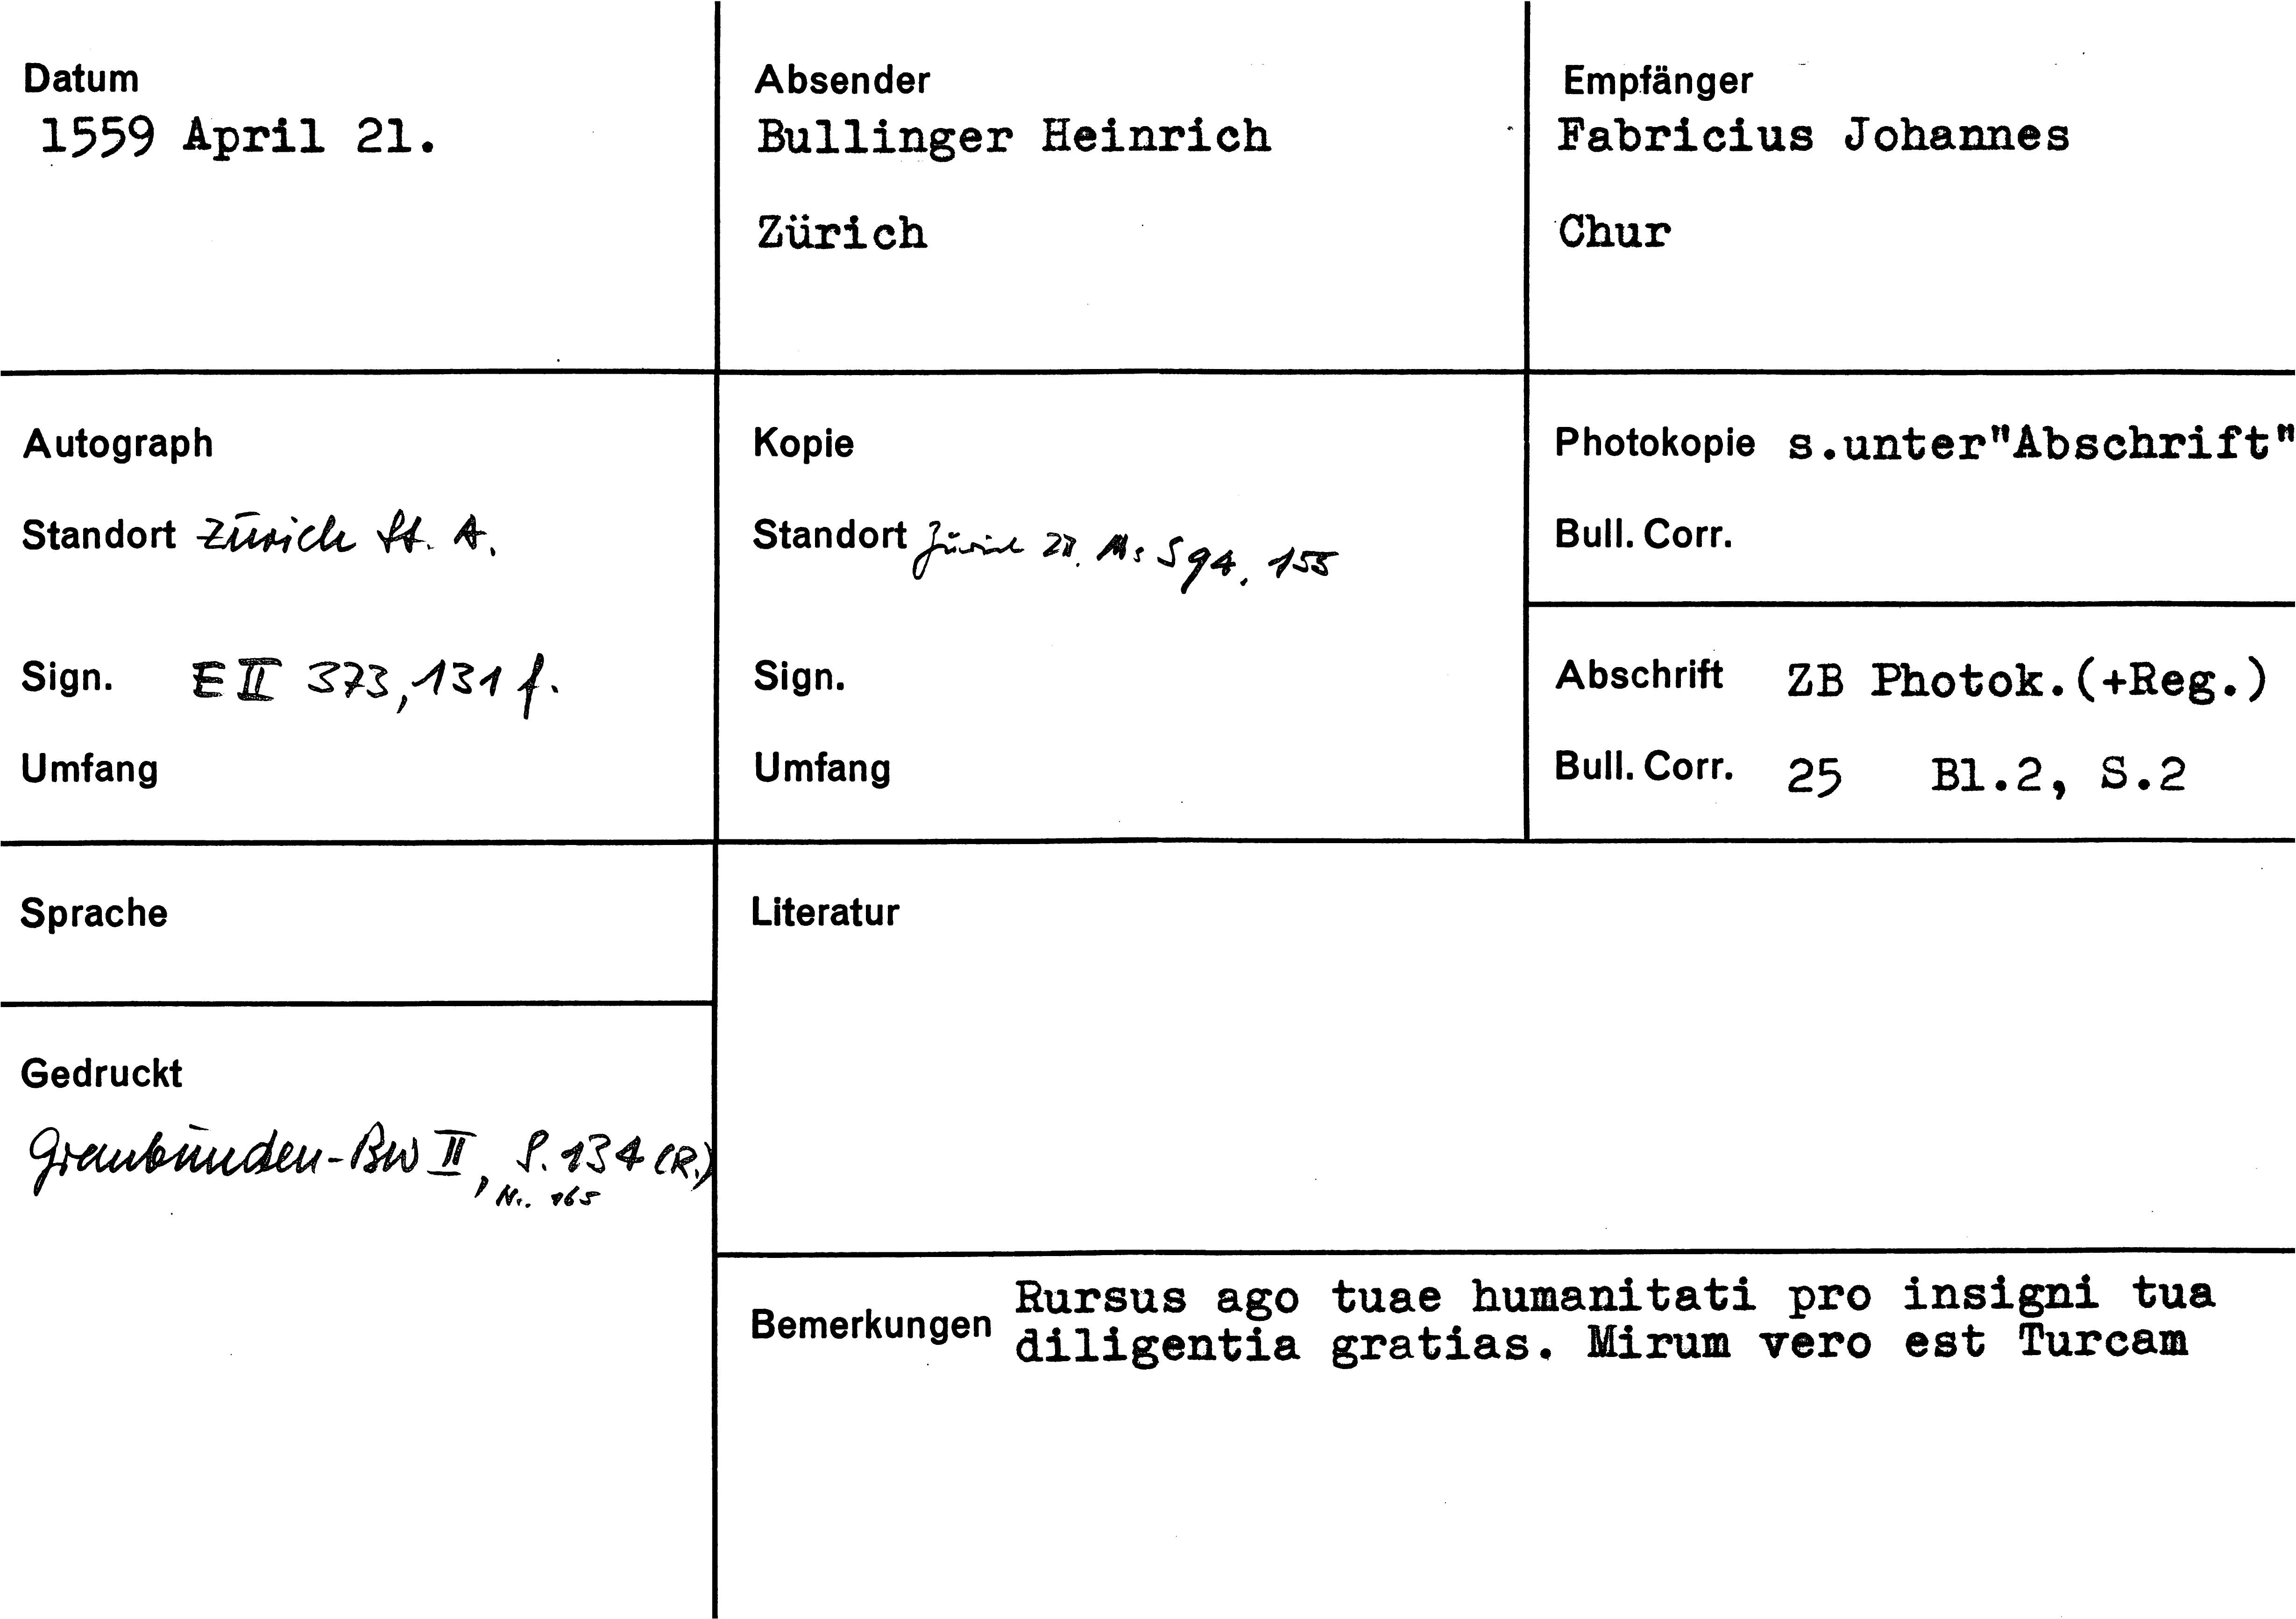 Datum
1559 April 21.
Absender
Bullinger Heinrich
Zürich
Empfänger
Fabricius Johannes
Chur
Autograph
Standort Zürich St. A.
Sign. E II 373, 131 f.
Umfang
Kopie
Standort Zürich ZB. Ms S 94, 155
Sign.
Umfang
Photokopie s.unter"Abschrift"
Bull. Corr.
Abschrift ZB Photok.(+Reg.)
Bull. Corr. 25 Bl.2, S.2
Sprache
Gedruckt
Graubünden-BW II, S. 134 (R.)
Nr. 165
Literatur
Bemerkungen Rursus ago tuae humanitati pro insigni tua
diligentia gratias. Mirum vero est Turcam